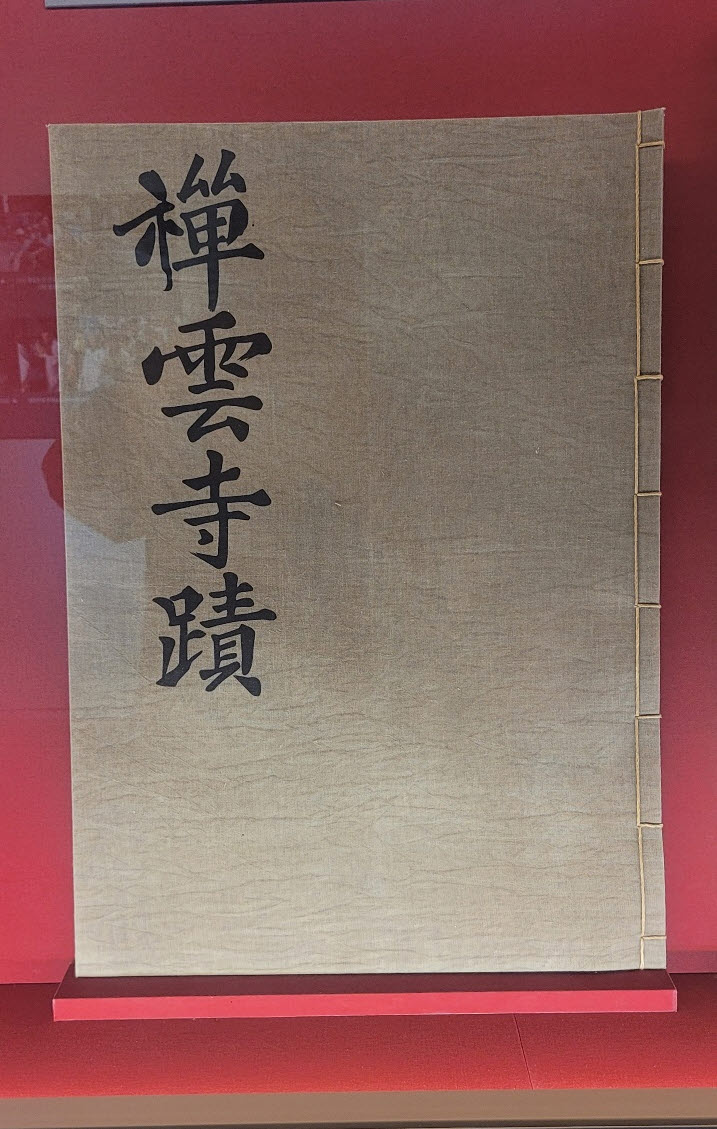 禪雲寺蹟